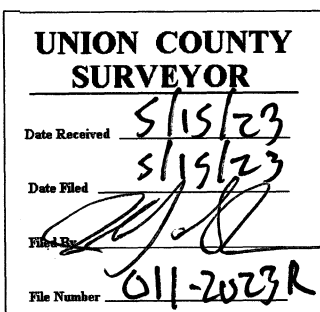 UNION COUNTY
SURVEYOR
Date Received 5/15/23
Date Filed 5/15/23
Filed By
File Number 011-2023R